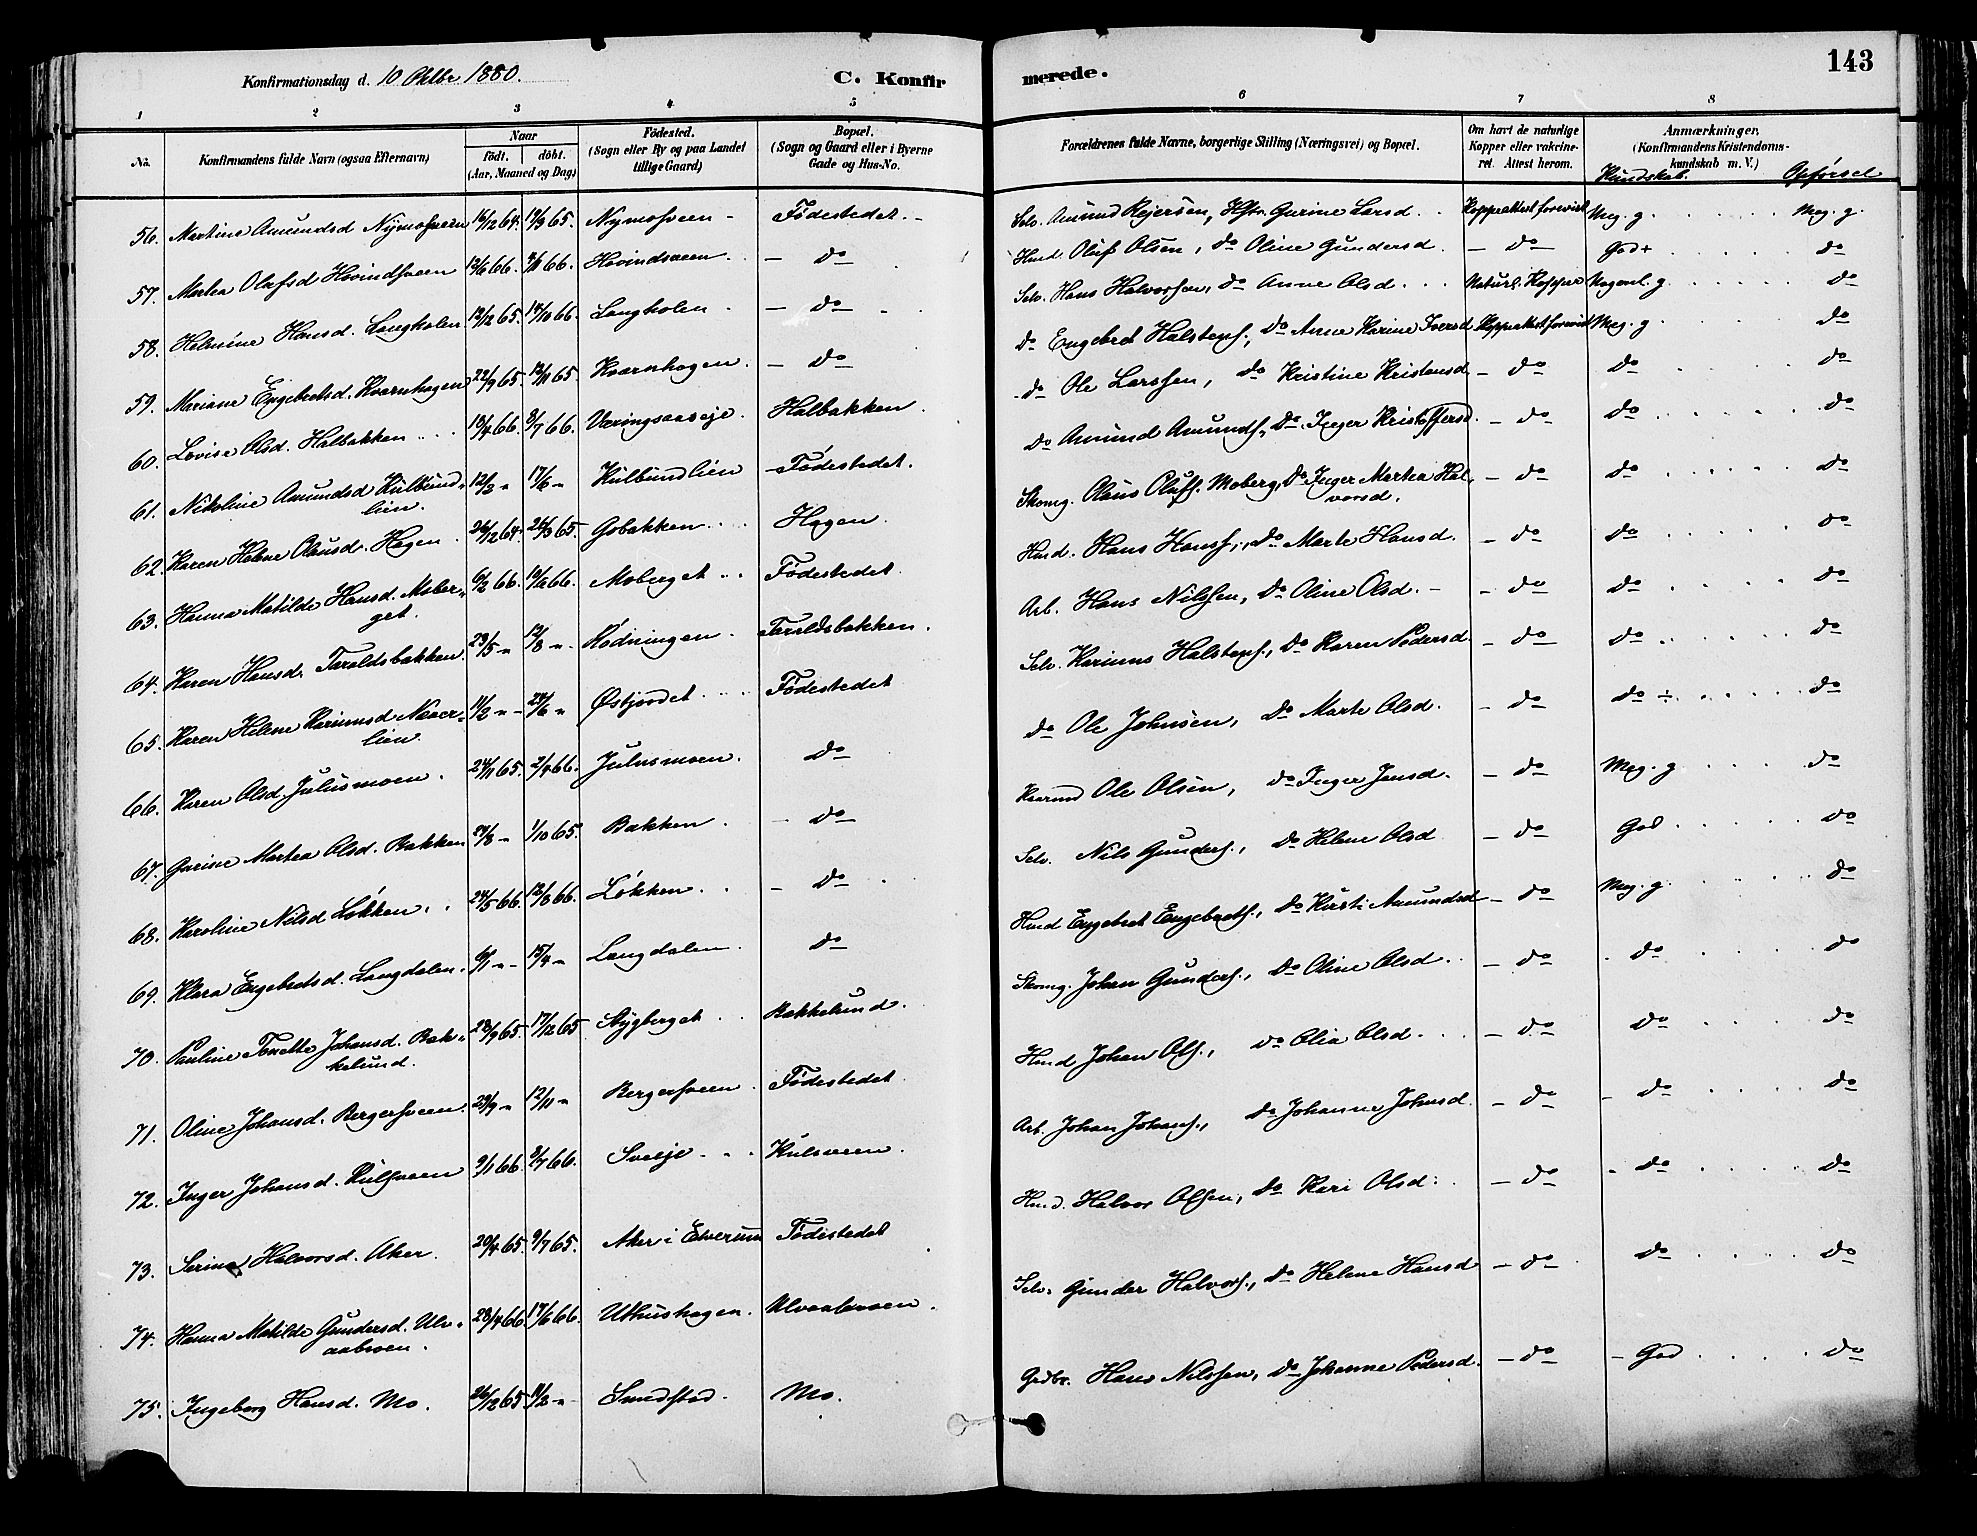 143
Konfirmationsdag d. 10 Oktbr 1880. C. Konfirmerede.
1 2 3 4 5 6 7 8
No. Konfirmandens fulde Navn (ogsaa Efternavn) Naar födt. döbt. (Aar, Maaned og Dag) Födested. (Sogn eller By og paa Landet tillige Gaard) Bopæl. (Sogn og Gaard eller i Byerne Gade og Hus-No. Forældrenes fulde Navne, borgerlige Stilling (Næringsvei) og Bopæl. Om havt de naturlige Kopper eller vakcineret. Attest herom. Anmærkninger, (Konfirmandens Kristendomskundskab m. V.) Kundskab. Opførsel
56. Martine Amundsd Nymosveen 16/12 64. 19/3 65. Nymosveen - Fødestedet. Selv. Amund Rejersen, Hstr. Gurine Larsd. Koppeattest forevist Meg. g. Meg. g.
57. Martea Olufsd Hovindsveen 12/6 66. 4/11 66. Hovindsveen - do Husd. Oluf Olsen, do Oline Gundersd. - do - God+ do
58. Helmine Hansd. Langholen 12/12 65. 14/10 66. Langholen - do Selv. Hans Halvorsen, do Anne Olsd. Naturl. Kopper Nogenl. g. do
59. Mariane Engebretsd. Kværnhagen 22/9 65. 12/11 65. Kværnhagen. - do do Engebret Halstens., do Anne Karine Iversd Koppeattest forevist Meg. g. do
60. Lovise Olsd. Halbakken 18/4 66. 8/7 66. Væringsaaseje. Halbakken. do Ole Larssen, do Kristine Kristensd - do do do
61. Nikoline Amundsd Kulbundlien. 12/3 " 17/6 " Kulbundlien Fødestedet. do Amund Amunds., do Inger Kristoffersd. - do do do
62. Karen Helene Olausd. Hagen. 26/12 64. 26/3 65. Gobakken Hagen. Skomg. Olaus Olufs. Moberg, do Inger Martea Halvorsd. - do do do
63. Hanna Matilde Hansd. Moberget. 6/2 66. 19/2 66. Moberget Fødestedet. Husd. Hans Hans., do Marte Hansd. - do do do
64. Karen Hansd. Taraldsbakken. 29/5 " 12/8 " Rødningen. Taraldsbakken. Arb. Hans Nilssen, do Oline Olsd. - do do do
65. Karen Helene Kariusd Næverlien. 11/2 " 24/6 " Østjordet Fødestedet Selv. Karius Halstens., do Karen Pedersd - do do do
66. Karen Olsd. Julusmoen. 24/11 65. 2/4 66. Julusmoen. do do Ole Johnsen, do Marte Olsd. - do do ÷ do
67. Gurine Martea Olsd. Bakken 27/8 " 1/10 65. Bakken. - do Ole Olsen, do Inger Jensd. - do Meg. g do
68. Karoline Nilsd Løkken. 24/5 66. 12/8 66. Løkken. - do Selv. Nils Gunders., do Helene Olsd - do God do
69. Klara Engebretsd. Langdalen. 6/1 " 15/4 " Langdalen. do Husd Engebret Engebrets., do Kirsti Amundsd - do Meg. g do
70. Pauline Tonette Johansd. Bakkelund. 28/9 65. 17/12 65 Stygberget Bakkelund. Skomg. Johan Gunders., do Oline Olsd. - do do do
71. Oline Johansd. Bergersveen. 29/9 " 12/11 " Bergersveen. Fødestedet. Husd Johan Ols., do Olia Olsd. - do do do
72. Inger Johansd. Kulsveen 9/1 66. 8/7 66. Sveeje Kulsveen. Arb. Johan Johans., do Johanne Johnsd. - do do do
73. Serina Halvorsd. Aker. 20/4 65. 9/7 65. Aker i Elverum Fødestedet Husd. Halvor Olsen, do Kari Olsd. - do do do
74. Hanna Matilde Gundersd. Ulvaabroen. 28/4 66. 17/6 66. Uthushagen. Ulvaabroen. Selv. Gunder Halvors., do Helene Hansd - do do do
75. Ingeborg Hansd. Mo. 26/12 65 11/2 " Sundstad. Mo. Gadbr. Hans Nilssen, do Johanne Pedersd. - do - God do